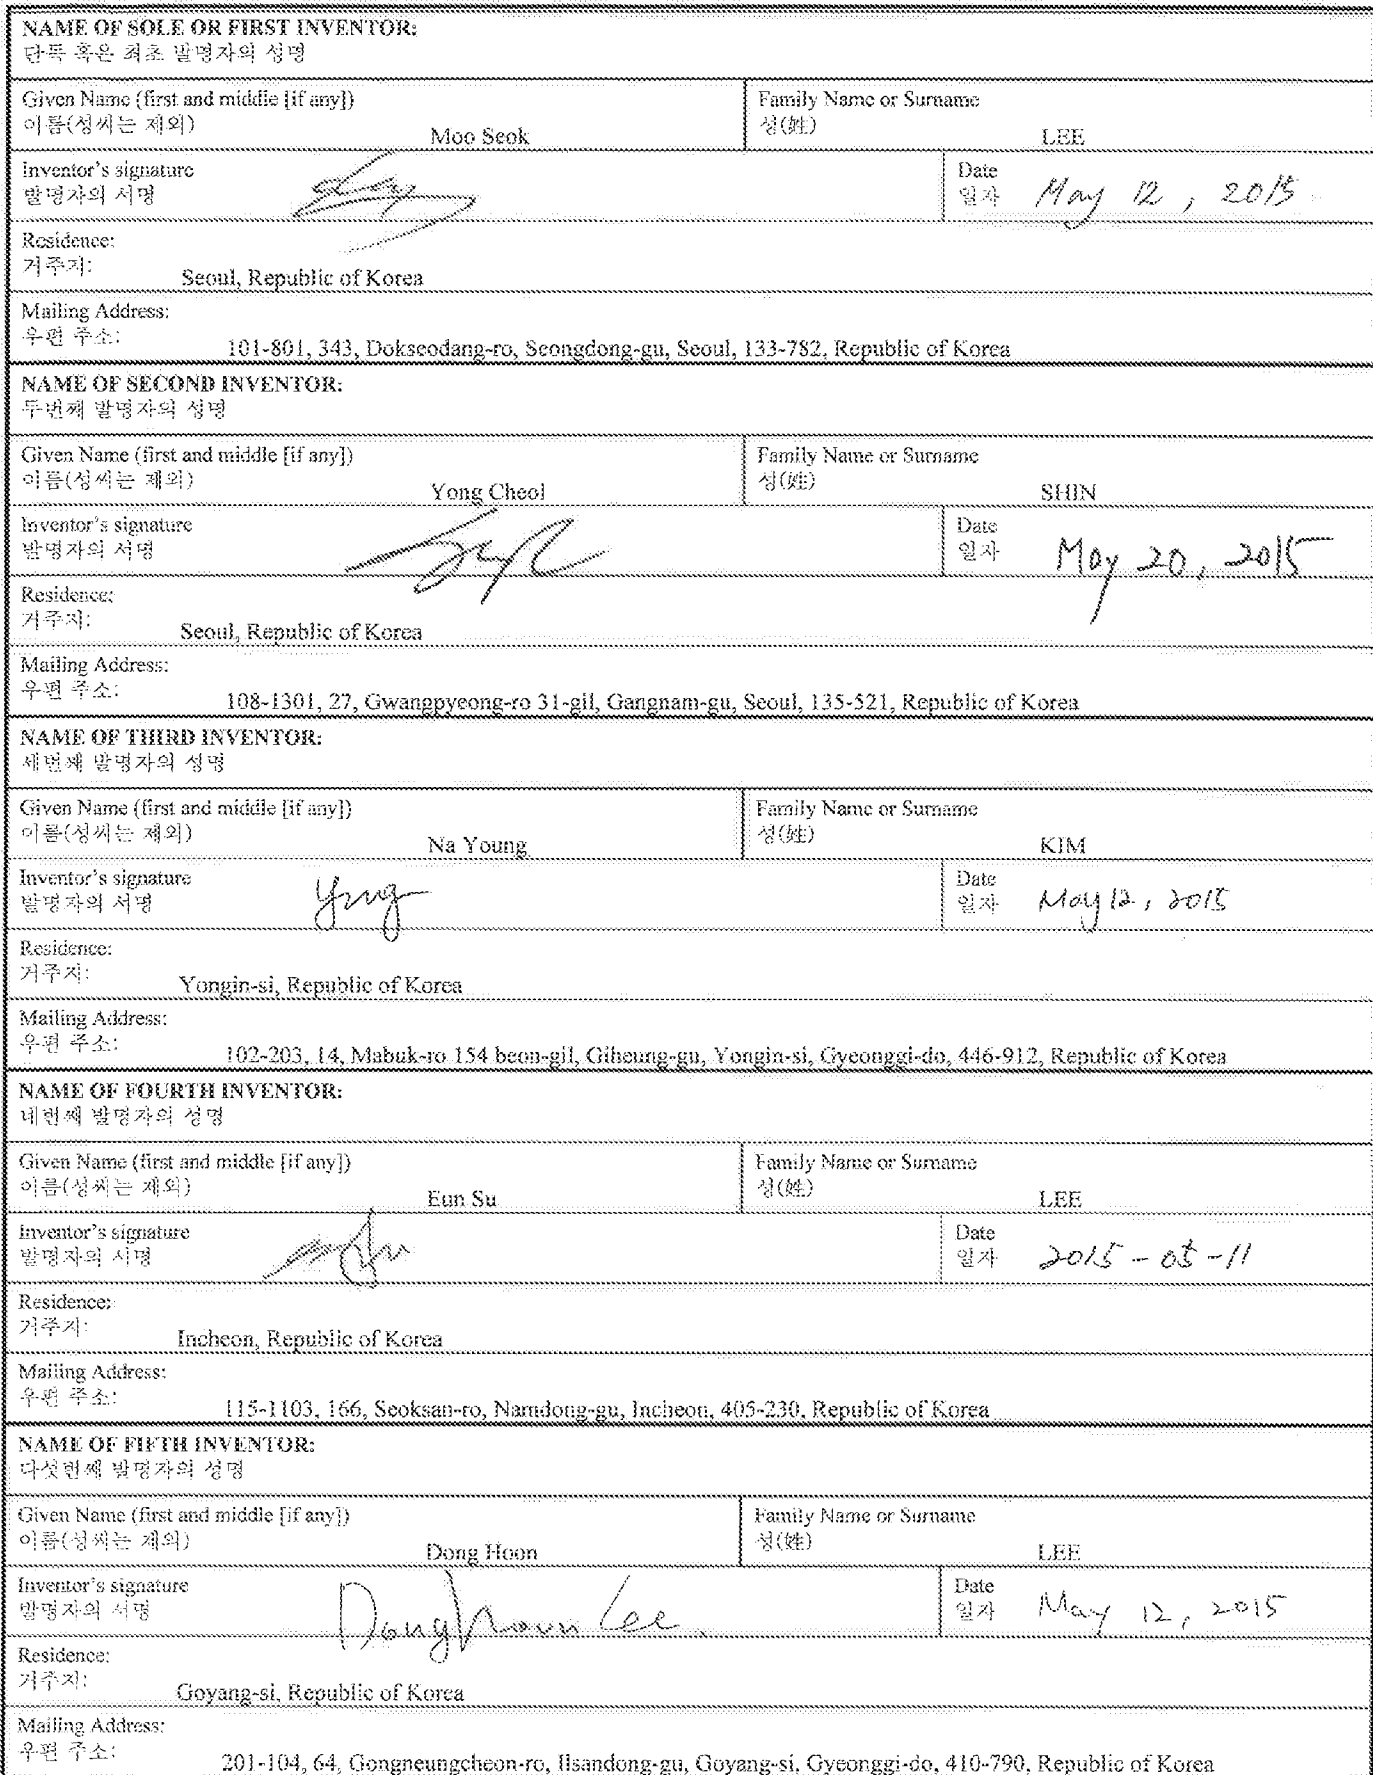 NAME OF SOLE OR FIRST INVENTOR:
단독 혹은 최초 발명자의 성명
Given Name (first and middle [if any])
이름(성씨는 제외)
Moo Seok
Family Name or Surname
성(姓)
LEE
Inventor's signature
발명자의 서명
Date
일자
May 12, 2015
Residence:
거주지:
Seoul, Republic of Korea
Mailing Address:
우편 주소:
101-801, 343, Dokseodang-ro, Seongdong-gu, Seoul, 133-782, Republic of Korea
NAME OF SECOND INVENTOR:
두번째 발명자의 성명
Given Name (first and middle [if any])
이름(성씨는 제외)
Yong Cheol
Family Name or Surname
성(姓)
SHIN
Inventor's signature
발명자의 서명
Date
일자
May 20, 2015
Residence:
거주지:
Seoul, Republic of Korea
Mailing Address:
우편 주소:
108-1301, 27, Gwangpyeong-ro 31-gil, Gangnam-gu, Seoul, 135-521, Republic of Korea
NAME OF THIRD INVENTOR:
세번째 발명자의 성명
Given Name (first and middle [if any])
이름(성씨는 제외)
Na Young
Family Name or Surname
성(姓)
KIM
Inventor's signature
발명자의 서명
Date
일자
May 12, 2015
Residence:
거주지:
Yongin-si, Republic of Korea
Mailing Address:
우편 주소:
102-203, 14, Mabuk-ro 154 beon-gil, Giheung-gu, Yongin-si, Gyeonggi-do, 446-912, Republic of Korea
NAME OF FOURTH INVENTOR:
네번째 발명자의 성명
Given Name (first and middle [if any])
이름(성씨는 제외)
Eun Su
Family Name or Surname
성(姓)
LEE
Inventor's signature
발명자의 서명
Date
일자
2015-05-11
Residence:
거주지:
Incheon, Republic of Korea
Mailing Address:
우편 주소:
115-1103, 166, Seoksan-ro, Namdong-gu, Incheon, 405-230, Republic of Korea
NAME OF FIFTH INVENTOR:
다섯번째 발명자의 성명
Given Name (first and middle [if any])
이름(성씨는 제외)
Dong Hoon
Family Name or Surname
성(姓)
LEE
Inventor's signature
발명자의 서명
Donghoon Lee.
Date
일자
May 12, 2015
Residence:
거주지:
Goyang-si, Republic of Korea
Mailing Address:
우편 주소:
201-104, 64, Gongneungcheon-ro, Ilsandong-gu, Goyang-si, Gyeonggi-do, 410-790, Republic of Korea